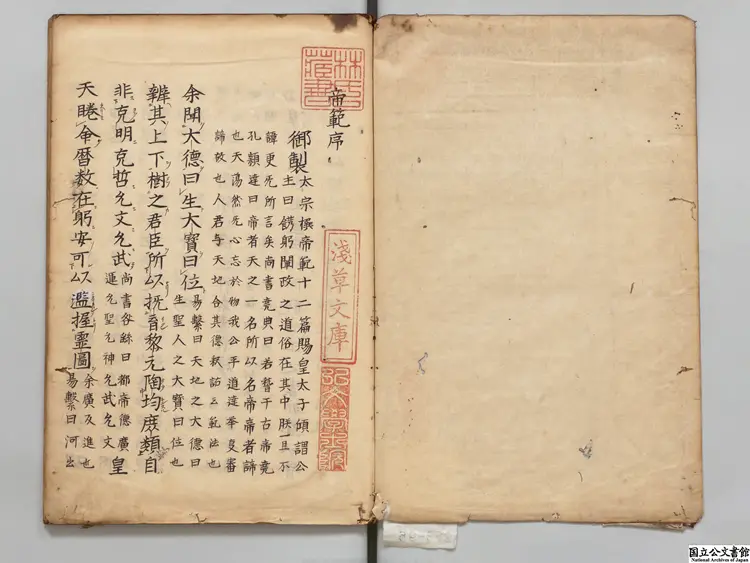 林氏藏書
帝範序
御製
太宗撰帝範十二篇賜皇太子傾謂公
主曰餝躬闡政之道俗在其中朕一旦不
諱更旡所言矣尚書堯典曰若稽于古帝堯
孔穎達曰帝者天之一名所以名帝帝者諦
也天蕩然旡心忘於物我公平通達華夏審
諦故也人君与天地合其德云範法也
余聞大德曰生大寶曰位
易繫曰天地之大德曰
生聖人之大寶曰位也
辨其上下樹之君臣所以撫育黎元陶均庶類自
非克明克哲允文允武
尚書咎繇曰都帝德廣
運乃聖乃神乃武乃文
皇
天睠命暦数在躬安可以濫握靈圖
余廣及進也
易繫曰河出
淺草文庫
弘文學士院
国立公文書館
National Archives of Japan